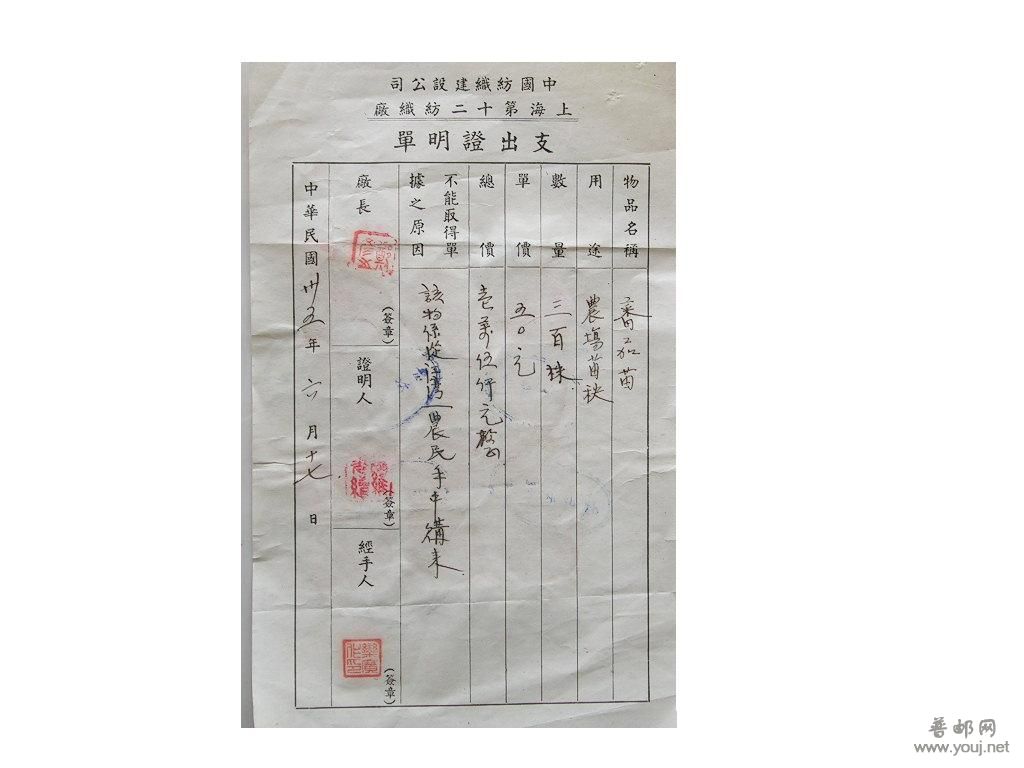 中國紡織建設公司
上海第十二紡織廠
支出證明單
物品名稱
番茄苗
用途
農場苗秧
數量
三百株
單價
五〇元
總價
壹萬伍仟元整
不能取得單
據之原因
該物係從江灣一農民手中購來
廠長
(簽章)
證明人
(簽章)
經手人
(簽章)
中華民國卅五年六月十七日
普邮网
www.youj.net